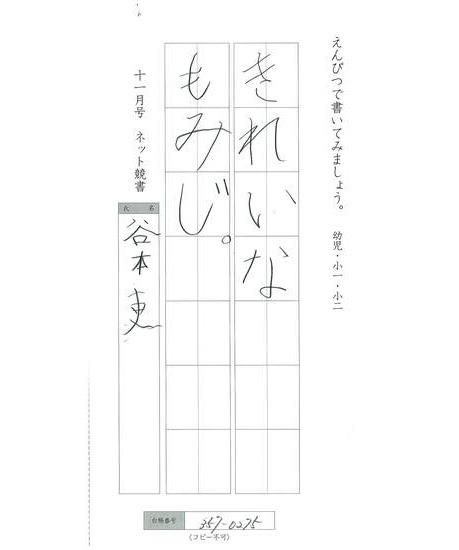 えんぴつで書いてみましょう。 幼児・小一・小二
きれいな
もみじ。
十一月号 ネット競書
氏名
谷本恵
台帳番号 357-0275
(コピー不可)